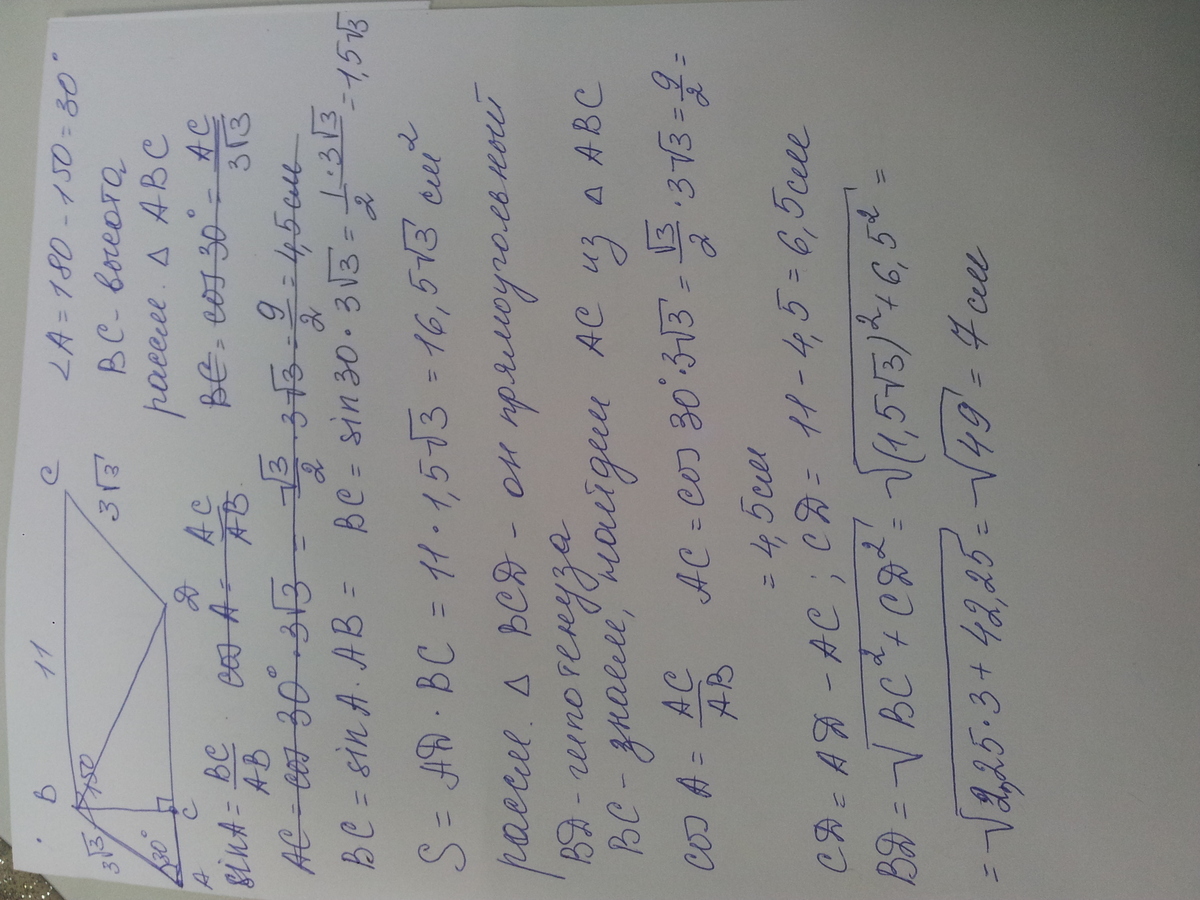 B 11 C
3√3 150 3√3
30°
A C D
∠A = 180 - 150 = 30°
BC - высота
рассм. △ ABC
sin A = BC/AB cos A = AC/AB BC = cos 30° = AC/3√3
AC = cos 30° · 3√3 = √3/2 · 3√3 = 9/2 = 4,5 см
BC = sin A · AB = BC = sin 30 · 3√3 = 1/2 · 3√3 = 1,5√3
S = AD · BC = 11 · 1,5√3 = 16,5√3 см²
рассм. △ BCD - он прямоугольный
BD - гипотенуза
BC - знаем, найдем AC из △ ABC
cos A = AC/AB AC = cos 30° · 3√3 = √3/2 · 3√3 = 9/2 =
= 4,5 см
CD = AD - AC ; CD = 11 - 4,5 = 6,5 см
BD = √(BC² + CD²) = √((1,5√3)² + 6,5²) =
= √(2,25 · 3 + 42,25) = √49 = 7 см